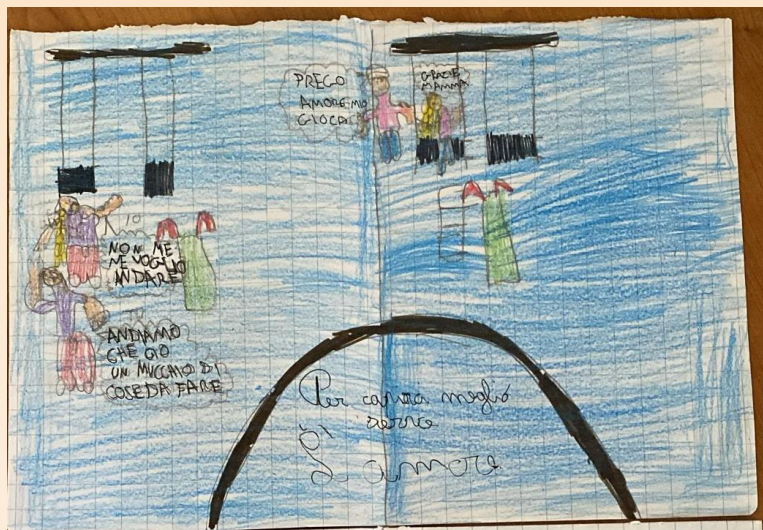 PREGO
AMORE MIO
GIOCA
GRAZIE
MAMMA
IO
NON ME
NE VOGLIO
ANDARE
ANDIAMO
CHE GIO
UN MUCCHIO DI
COSE DA FARE
Per capirci meglio
serve
L'amore